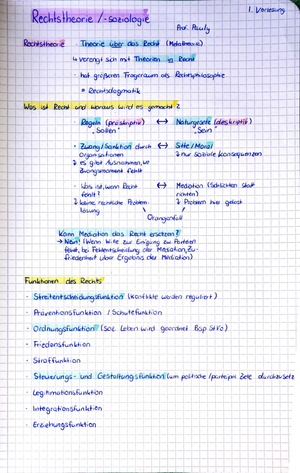 1. Vorlesung
Rechtstheorie / -soziologie
Prof. Pauly
Rechtstheorie Theorie über das Recht (Metatheorie)
↳ verengt sich mit Theorien im Recht
· hat größeren Frageraum als Rechtsphilosophie
≠ Rechtsdogmatik
Was ist Recht und woraus wird es gemacht?
· Regeln (präskriptiv) ↔ Naturgesetz (deskriptiv)
"Sollen" "Sein"
· Zwang/Sanktion durch ↔ Sitte/Moral
Organisationen ↳ nur soziale Konsequenzen
↳ es gibt Ausnahmen, wo
Zwangsmoment fehlt
· Was ist, wenn Recht ↔ Mediation (Schlichten statt
fehlt? richten)
↳ keine rechtliche Problem- ↳ Problem hier gelöst
lösung
Kann Mediation das Recht ersetzen?
→ Nein! (Wenn Wille zur Einigung zw. Parteien
fehlt, bei Fehlentscheidung der Mediation, Zu-
friedenheit über Ergebnis der Mediation)
Funktionen des Rechts
· Streitentscheidungsfunktion (Konflikte werden reguliert)
· Präventionsfunktion / Schutzfunktion
· Ordnungsfunktion (soz. Leben wird geordnet Bsp StVO)
· Friedensfunktion
· Straffunktion
· Steuerungs- und Gestaltungsfunktion (um politische/parteipol. Ziele durchzusetz
· Legitimationsfunktion
· Integrationsfunktion
· Erziehungsfunktion